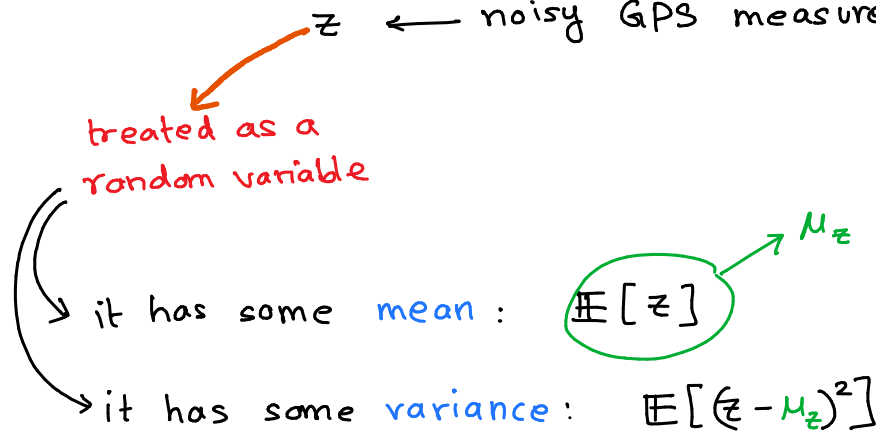 z ← noisy GPS measure
treated as a
random variable
μ_z
it has some mean : 𝔼[z]
it has some variance : 𝔼[(z - μ_z)²]